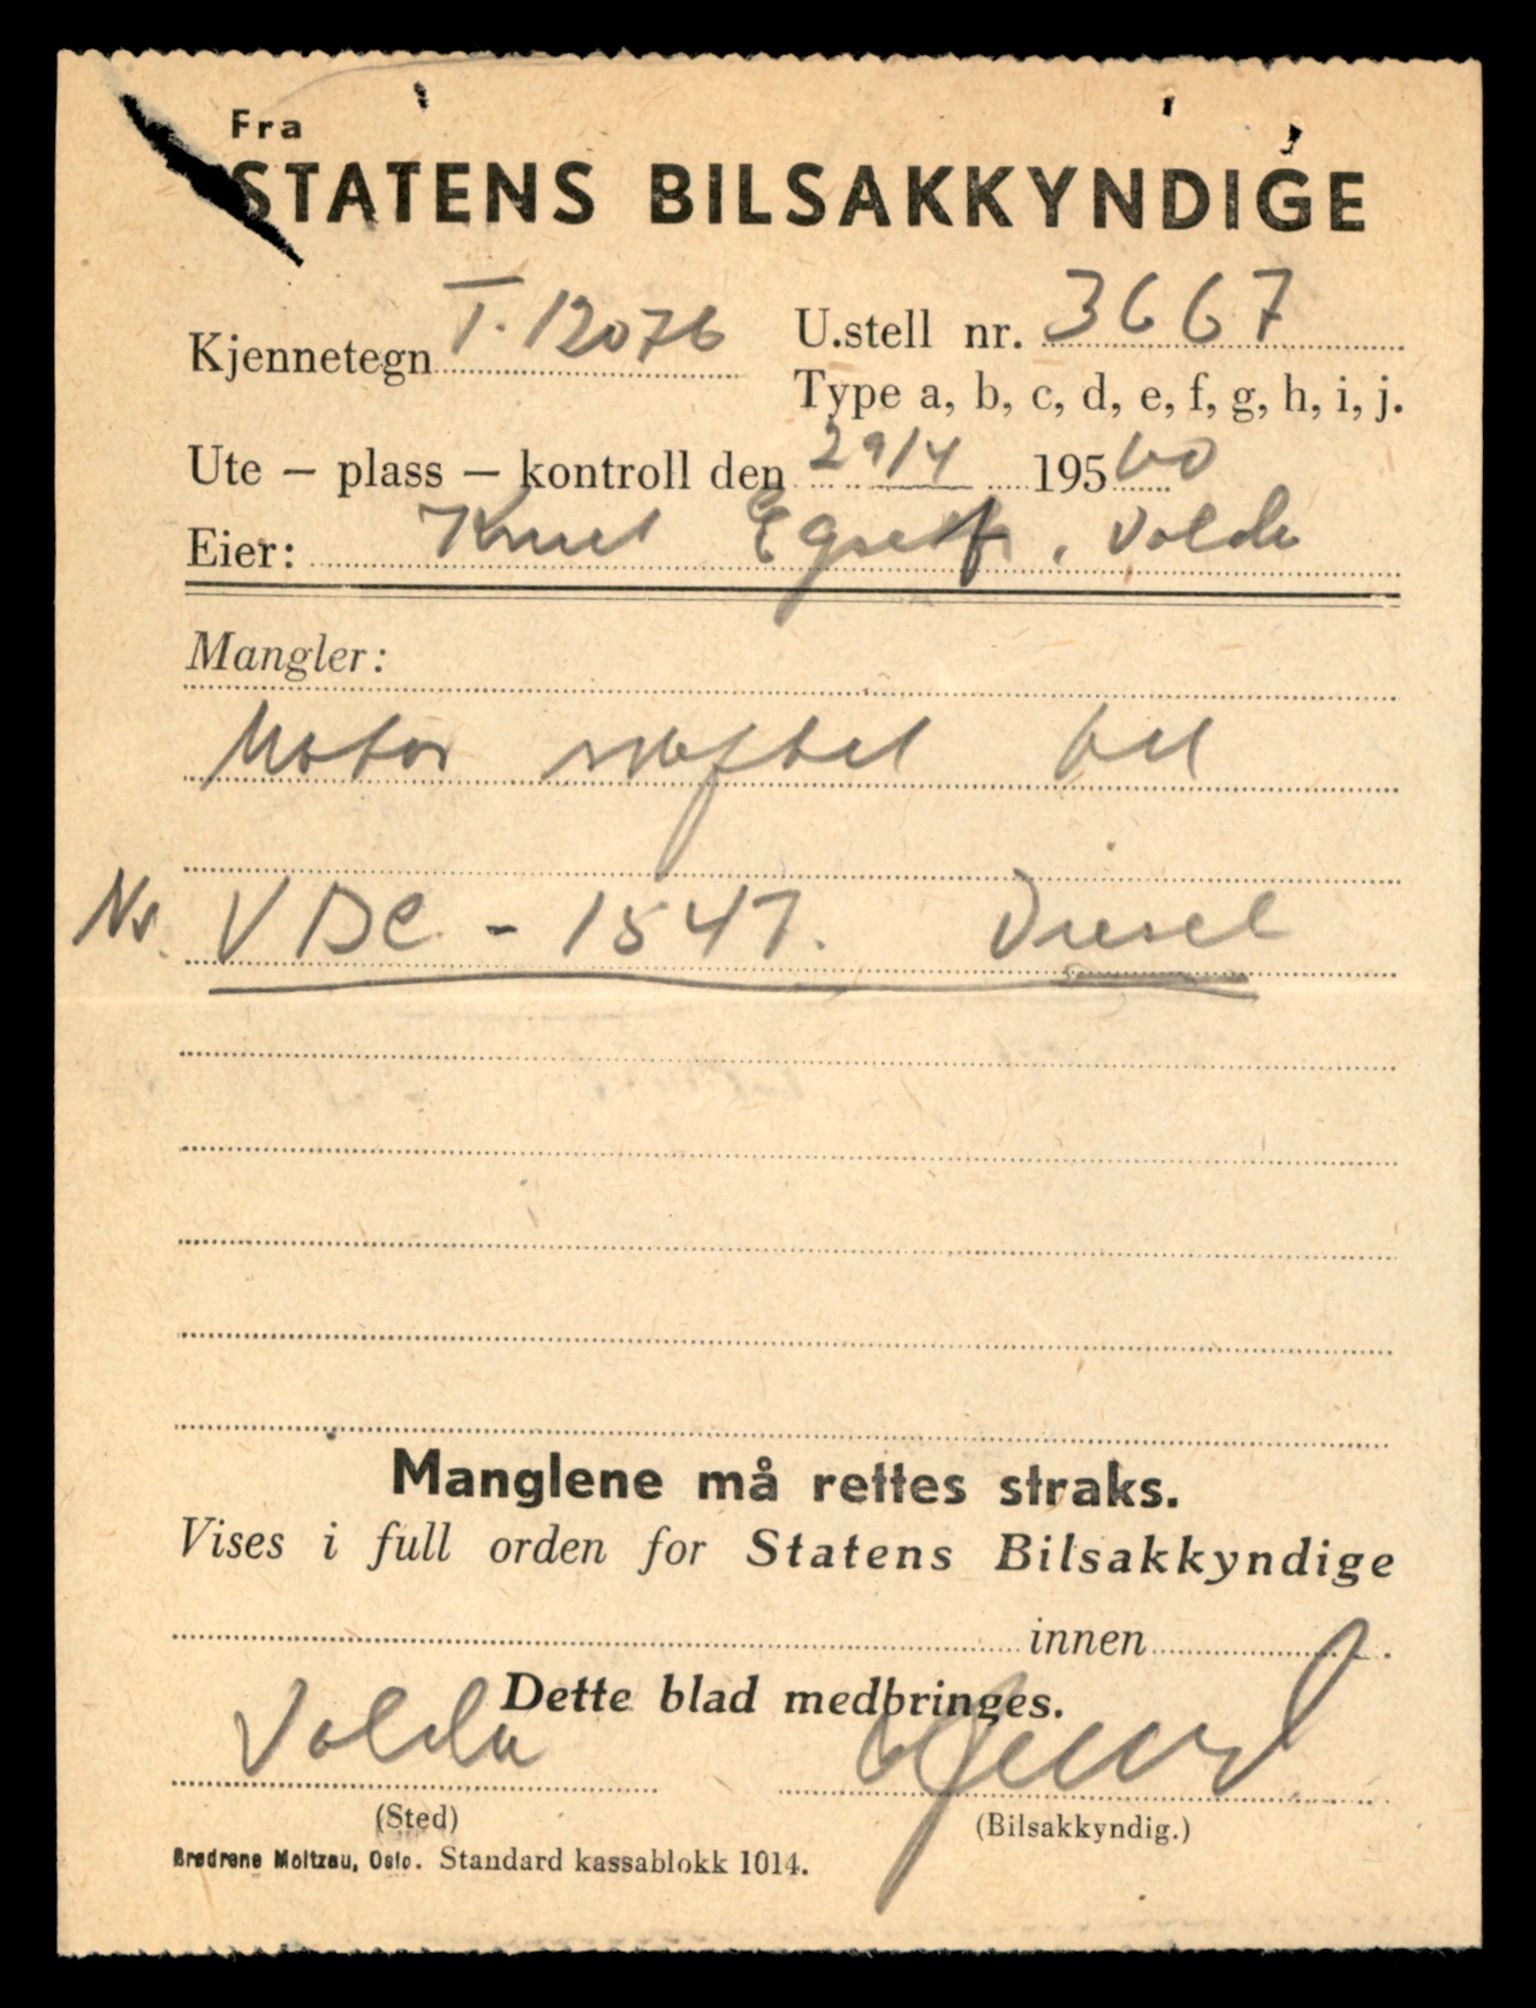 Fra
STATENS BILSAKKYNDIGE
Kjennetegn T. 12076
U.stell nr. 3667
Type a, b, c, d, e, f, g, h, i, j.
Ute – plass – kontroll den 29/4 195 60
Eier: Knut Egset, Volda
Mangler:
Motor skiftet til
Nr. VDC - 1547. Diesel
Manglene må rettes straks.
Vises i full orden for Statens Bilsakkyndige
innen
Dette blad medbringes.
Volda
(Sted)
(Bilsakkyndig.)
Brødrene Moltzau, Oslo. Standard kassablokk 1014.